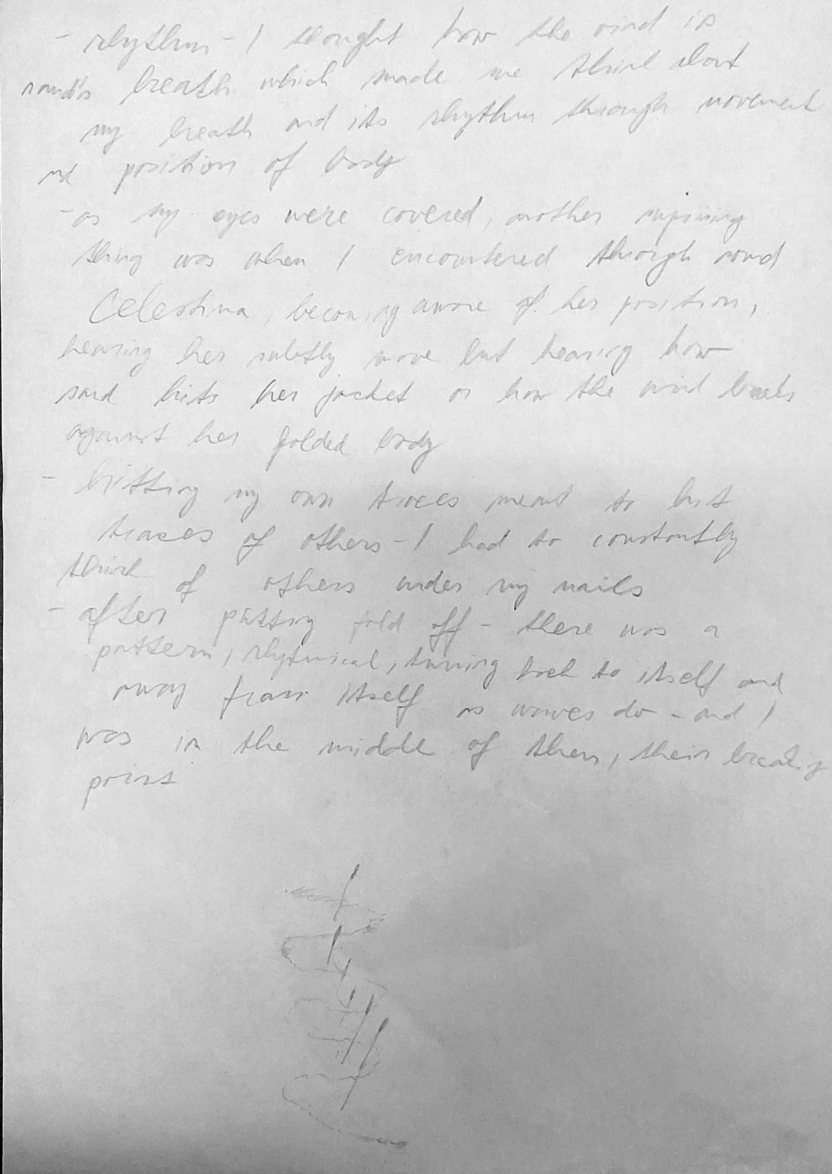 - rhythm - I thought how the wind is
sand's breath which made me think about
my breath and its rhythm through movement
and position of body
- as my eyes were covered, another
thing was when I encountered through sound
Celestina, becoming aware of her position,
hearing her subtly move but hearing how
sand hits her jacket or how the wind beats
against her folded body
- my own traces meant to
traces of others - I had to constantly
think of others under my nails
- after putting fold off - there was a
pattern, rhytmical, turning back to itself and
away from itself as waves do - and I
was in the middle of them, their breaking
point